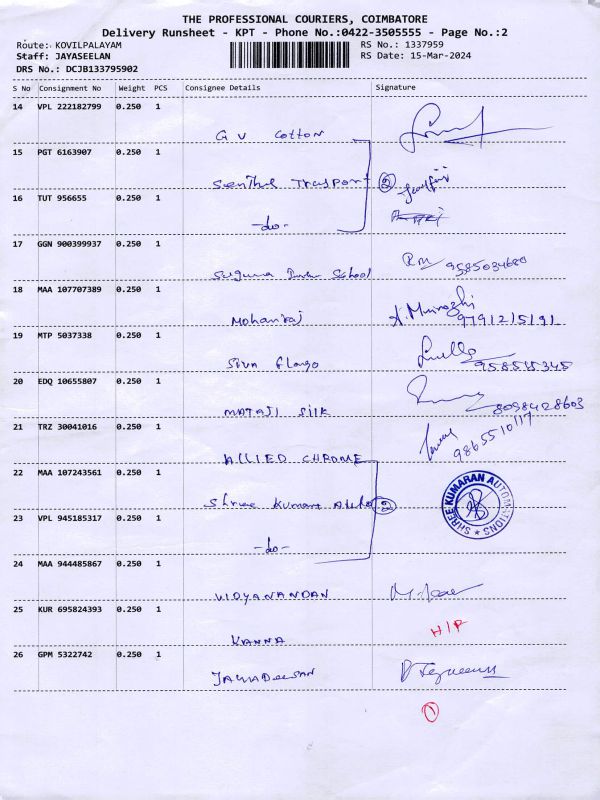 THE PROFESSIONAL COURIERS, COIMBATORE
Delivery Runsheet - KPT - Phone No.:0422-3505555 - Page No.:2
Route: KOVILPALAYAM RS No.: 1337959
Staff: JAYASEELAN RS Date: 15-Mar-2024
DRS No.: DCJB133795902
S No Consignment No Weight PCS Consignee Details Signature
14 VPL 222182799 0.250 1
G V Cotton
15 PGT 6163907 0.250 1
Senthil Trasport 2
16 TUT 956655 0.250 1
-do-
17 GGN 900399937 0.250 1
Suguna School 9585034680
18 MAA 107707389 0.250 1
Mohanraj 9791215191
19 MTP 5037338 0.250 1
Siva Elango 958515345
20 EDQ 10655807 0.250 1
MATAJI SILK 8098428603
21 TRZ 30041016 0.250 1
ALLIED CHROME 9865510117
22 MAA 107243561 0.250 1
Shree Kumaran 2
SHREE KUMARAN AUTOMATIONS
23 VPL 945185317 0.250 1
-do-
24 MAA 944485867 0.250 1
VIDYANANDAN
25 KUR 695824393 0.250 1
KANNA H/P
26 GPM 5322742 0.250 1
JAGADEESAN